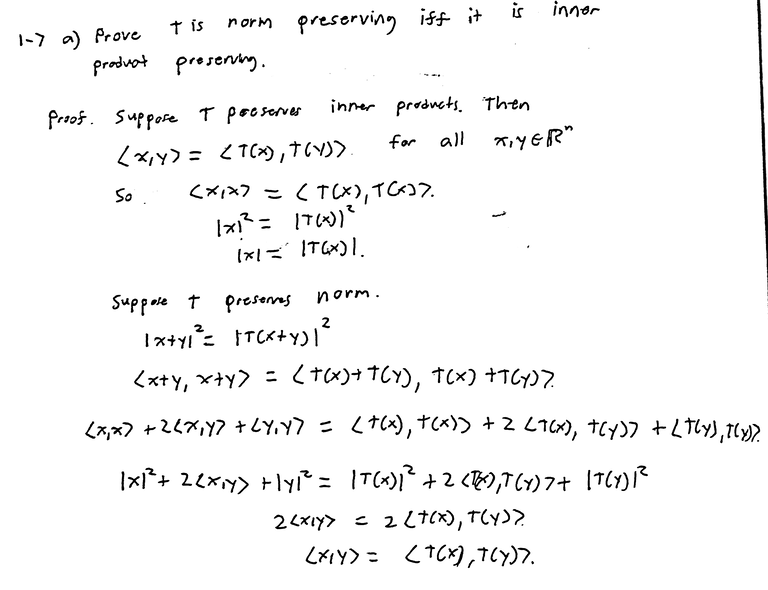 1-7 a) Prove T is norm preserving iff it is inner
product preserving.
Proof. Suppose T preserves inner products. Then
<x,y> = <T(x), T(y)>. for all x,y ∈ ℝⁿ
So <x,x> = <T(x), T(x)>.
|x|² = |T(x)|²
|x| = |T(x)|.
Suppose T preserves norm.
|x+y|² = |T(x+y)|²
<x+y, x+y> = <T(x)+T(y), T(x)+T(y)>.
<x,x> + 2<x,y> + <y,y> = <T(x), T(x)> + 2 <T(x), T(y)> + <T(y), T(y)>.
|x|² + 2<x,y> + |y|² = |T(x)|² + 2 <T(x), T(y)> + |T(y)|²
2<x,y> = 2<T(x), T(y)>.
<x,y> = <T(x), T(y)>.